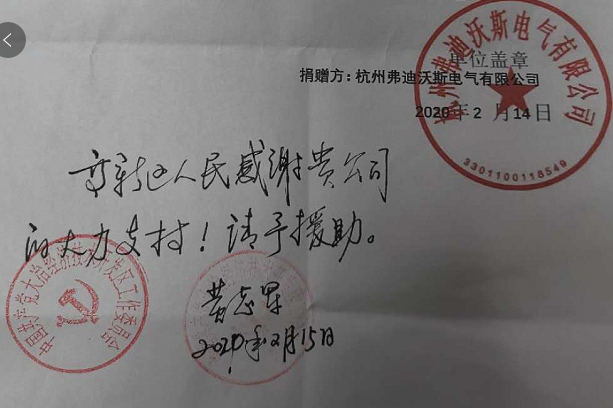 单位盖章
捐赠方：杭州弗迪沃斯电气有限公司
2020年 2 月 14日
杭州弗迪沃斯电气有限公司
3301100118549
高新区人民感谢贵公司
的大力支持！请予援助。
中国共产党大冶经济技术开发区工作委员会
2020年2月15日